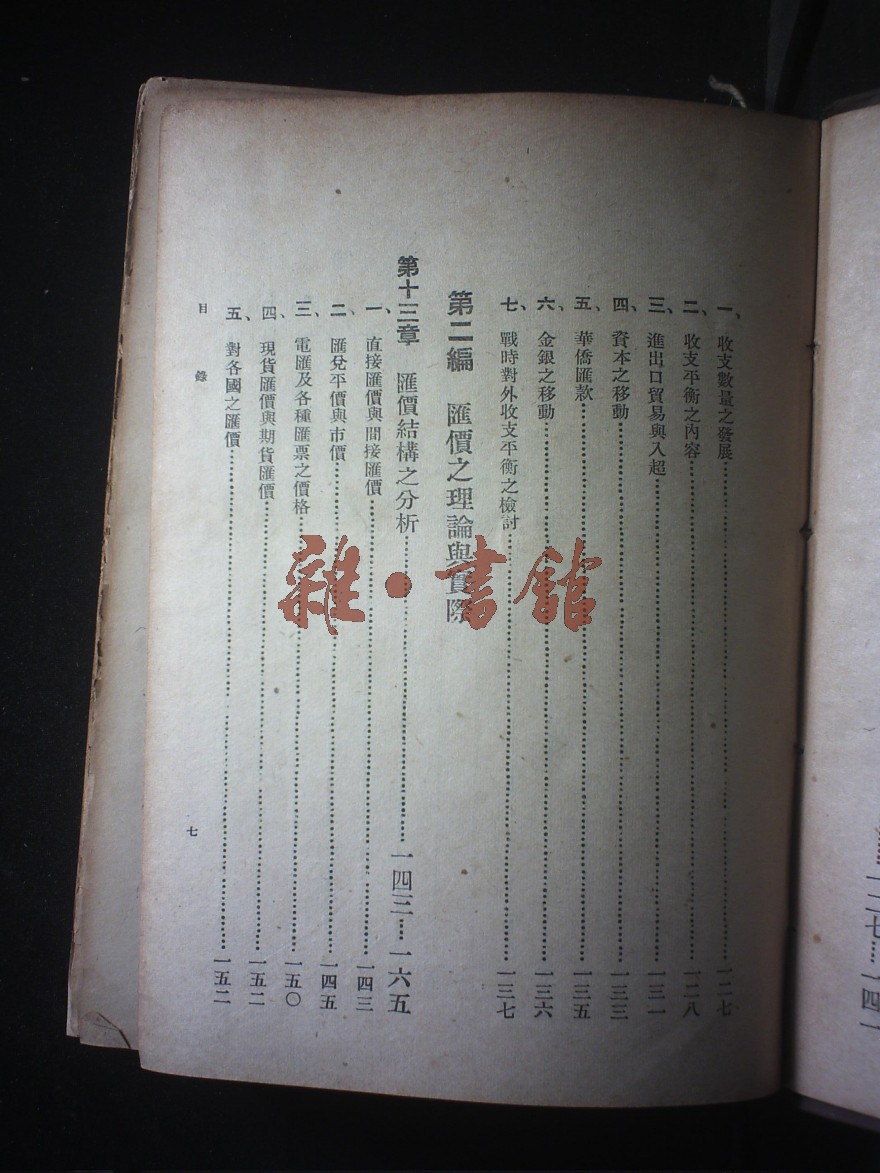 一、收支數量之發展……一二七
二、收支平衡之內容……一二八
三、進出口貿易與入超……一三一
四、資本之移動……一三三
五、華僑匯款……一三五
六、金銀之移動……一三六
七、戰時對外收支平衡之檢討……一三七
第二編 匯價之理論與實際
第十三章 匯價結構之分析……一四三—一六五
一、直接匯價與間接匯價……一四三
二、匯兌平價與市價……一四五
三、電匯及各種匯票之價格……一五〇
四、現貨匯價與期貨匯價……一五二
五、對各國之匯價……一五二
目錄
七
雜·書館
一二七……一四一